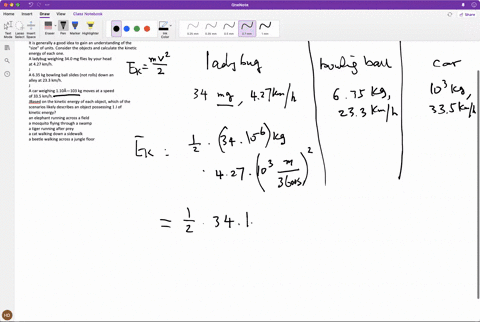 OneNote
Home Insert Draw View Class Notebook
It is generally a good idea to gain an understanding of the
"size" of units. Consider the objects and calculate the kinetic
energy of each one.
A ladybug weighing 34.0-mg flies by your head
at 4.27 km/h.
J
A 6.35 kg bowling ball slides (not rolls) down an
alley at 23.3 km/h.
J
A car weighing 1.20 kg moves at a speed
of 33.5 km/h.
Based on the kinetic energy of each object, which of the
scenarios likely describes an object possessing 1 J of
kinetic energy?
an elephant running across a field
a mosquito flying through a swamp
a tiger running after prey
a cat walking down a sidewalk
a beetle walking across a jungle floor.
E_K = mv²/2 ladybug bowling ball car
34 mg, 4.27 km/h 6.75 kg, 23.3 km/h 10³ kg, 33.5 km/h
E_K = 1/2 · (34 · 10⁻⁶) kg
· 4.27 · (10³ m/3600s)²
= 1/2 · 34 . 1.
HO